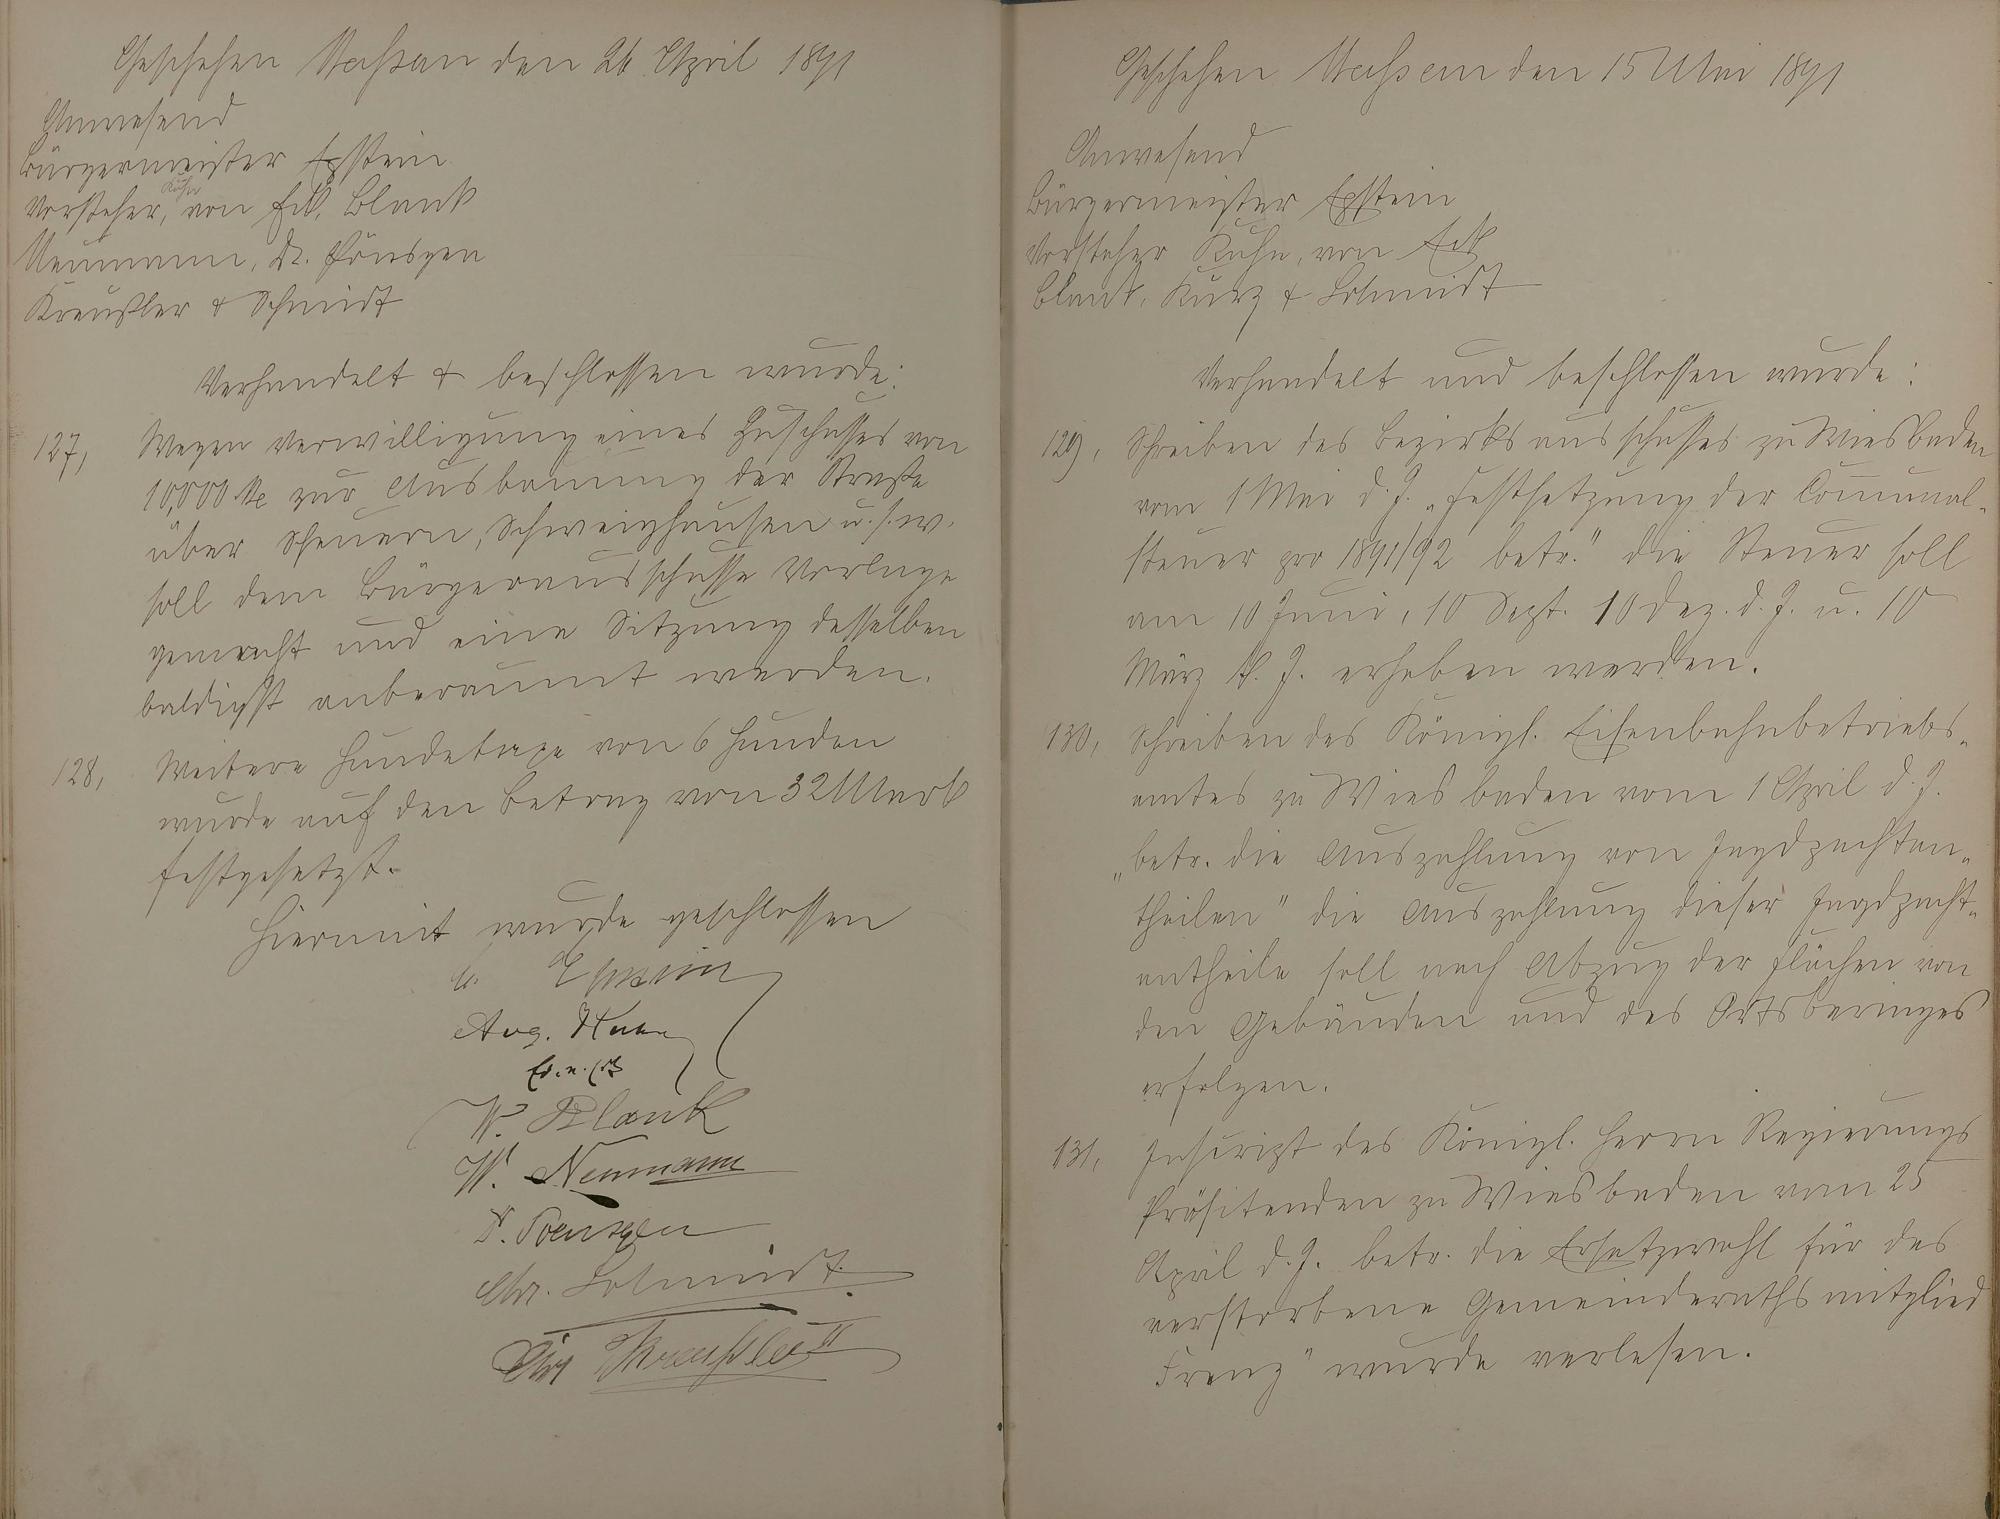 Geschehen Nassau den 26 April 1891
Anwesend
Bürgermeister Epstein
Kuhn
Vorsteher, von Eck, Blank
Neumann, Dr. Pönsgen
Kreußler & Schmidt
Verhandelt & beschlossen wurde:
127, Wegen Verwilligung eines Zuschusses von
10,000 M zur Ausbauung der Straße
über Scheuern, Schweighausen u. s. w.
soll dem Bürgerausschusse Vorlage
gemacht und eine Sitzung desselben
baldigst anberaumt werden.
128, Weitere Hundetaxe von 6 Hunden
wurde auf den Betrag von 32 Mark
festgesetzt.
Hiermit wurde geschlossen
Epstein
Aug. Kuhn
Ed. v. Eck
W. Blank
W. Neumann
Dr. Poensgen
Chr. Schmidt.
Chr Kreußler II
Geschehen Nassau den 15 Mai 1891
Anwesend
Bürgermeister Epstein
Vorsteher Kuhn, von Eck
Blank, Kurz & Schmidt
Verhandelt und beschlossen wurde:
129, Schreiben des Bezirksausschusses zu Wiesbaden
vom 1 Mai d. J. „Festsetzung der Communal-
steuer pro 1891/92 betr." die Steuer soll
am 10 Juni, 10 Sept. 10 Dez. d. J. u. 10
März k. J. erhoben werden.
130, Schreiben des Königl. Eisenbahnbetriebs-
amtes zu Wiesbaden vom 1 April d. J.
„betr. die Auszahlung von Jagdpachtan-
theilen" die Auszahlung dieser Jagdpacht-
antheile soll nach Abzug der Flächen von
den Gebäuden und des Ortsberinges
erfolgen.
131, Inscript des Königl. Herrn Regierungs
Präsitenden zu Wiesbaden vom 25
April d. J. betr. die Ersatzwahl für das
verstorbene Gemeinderathsmitglied
Franz" wurde verlesen.